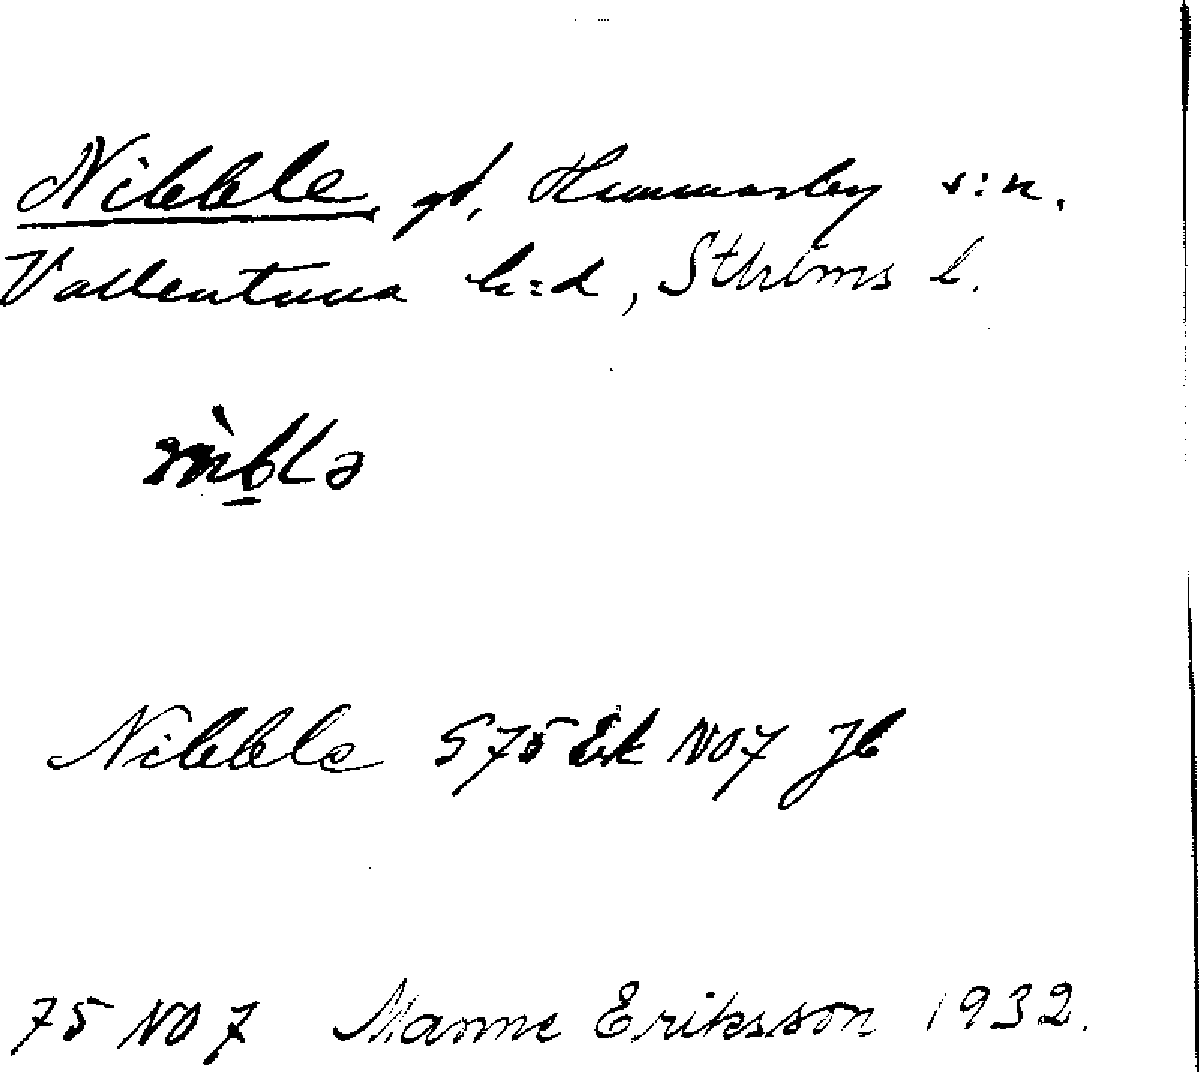 Nibble gd, Hammarby s:n.
Vallentuna h:d, Sthlms l.
nìb̲lə
Nibble S 75 Ek NO7 Jb
75 NO 7 Manne Eriksson 1932.